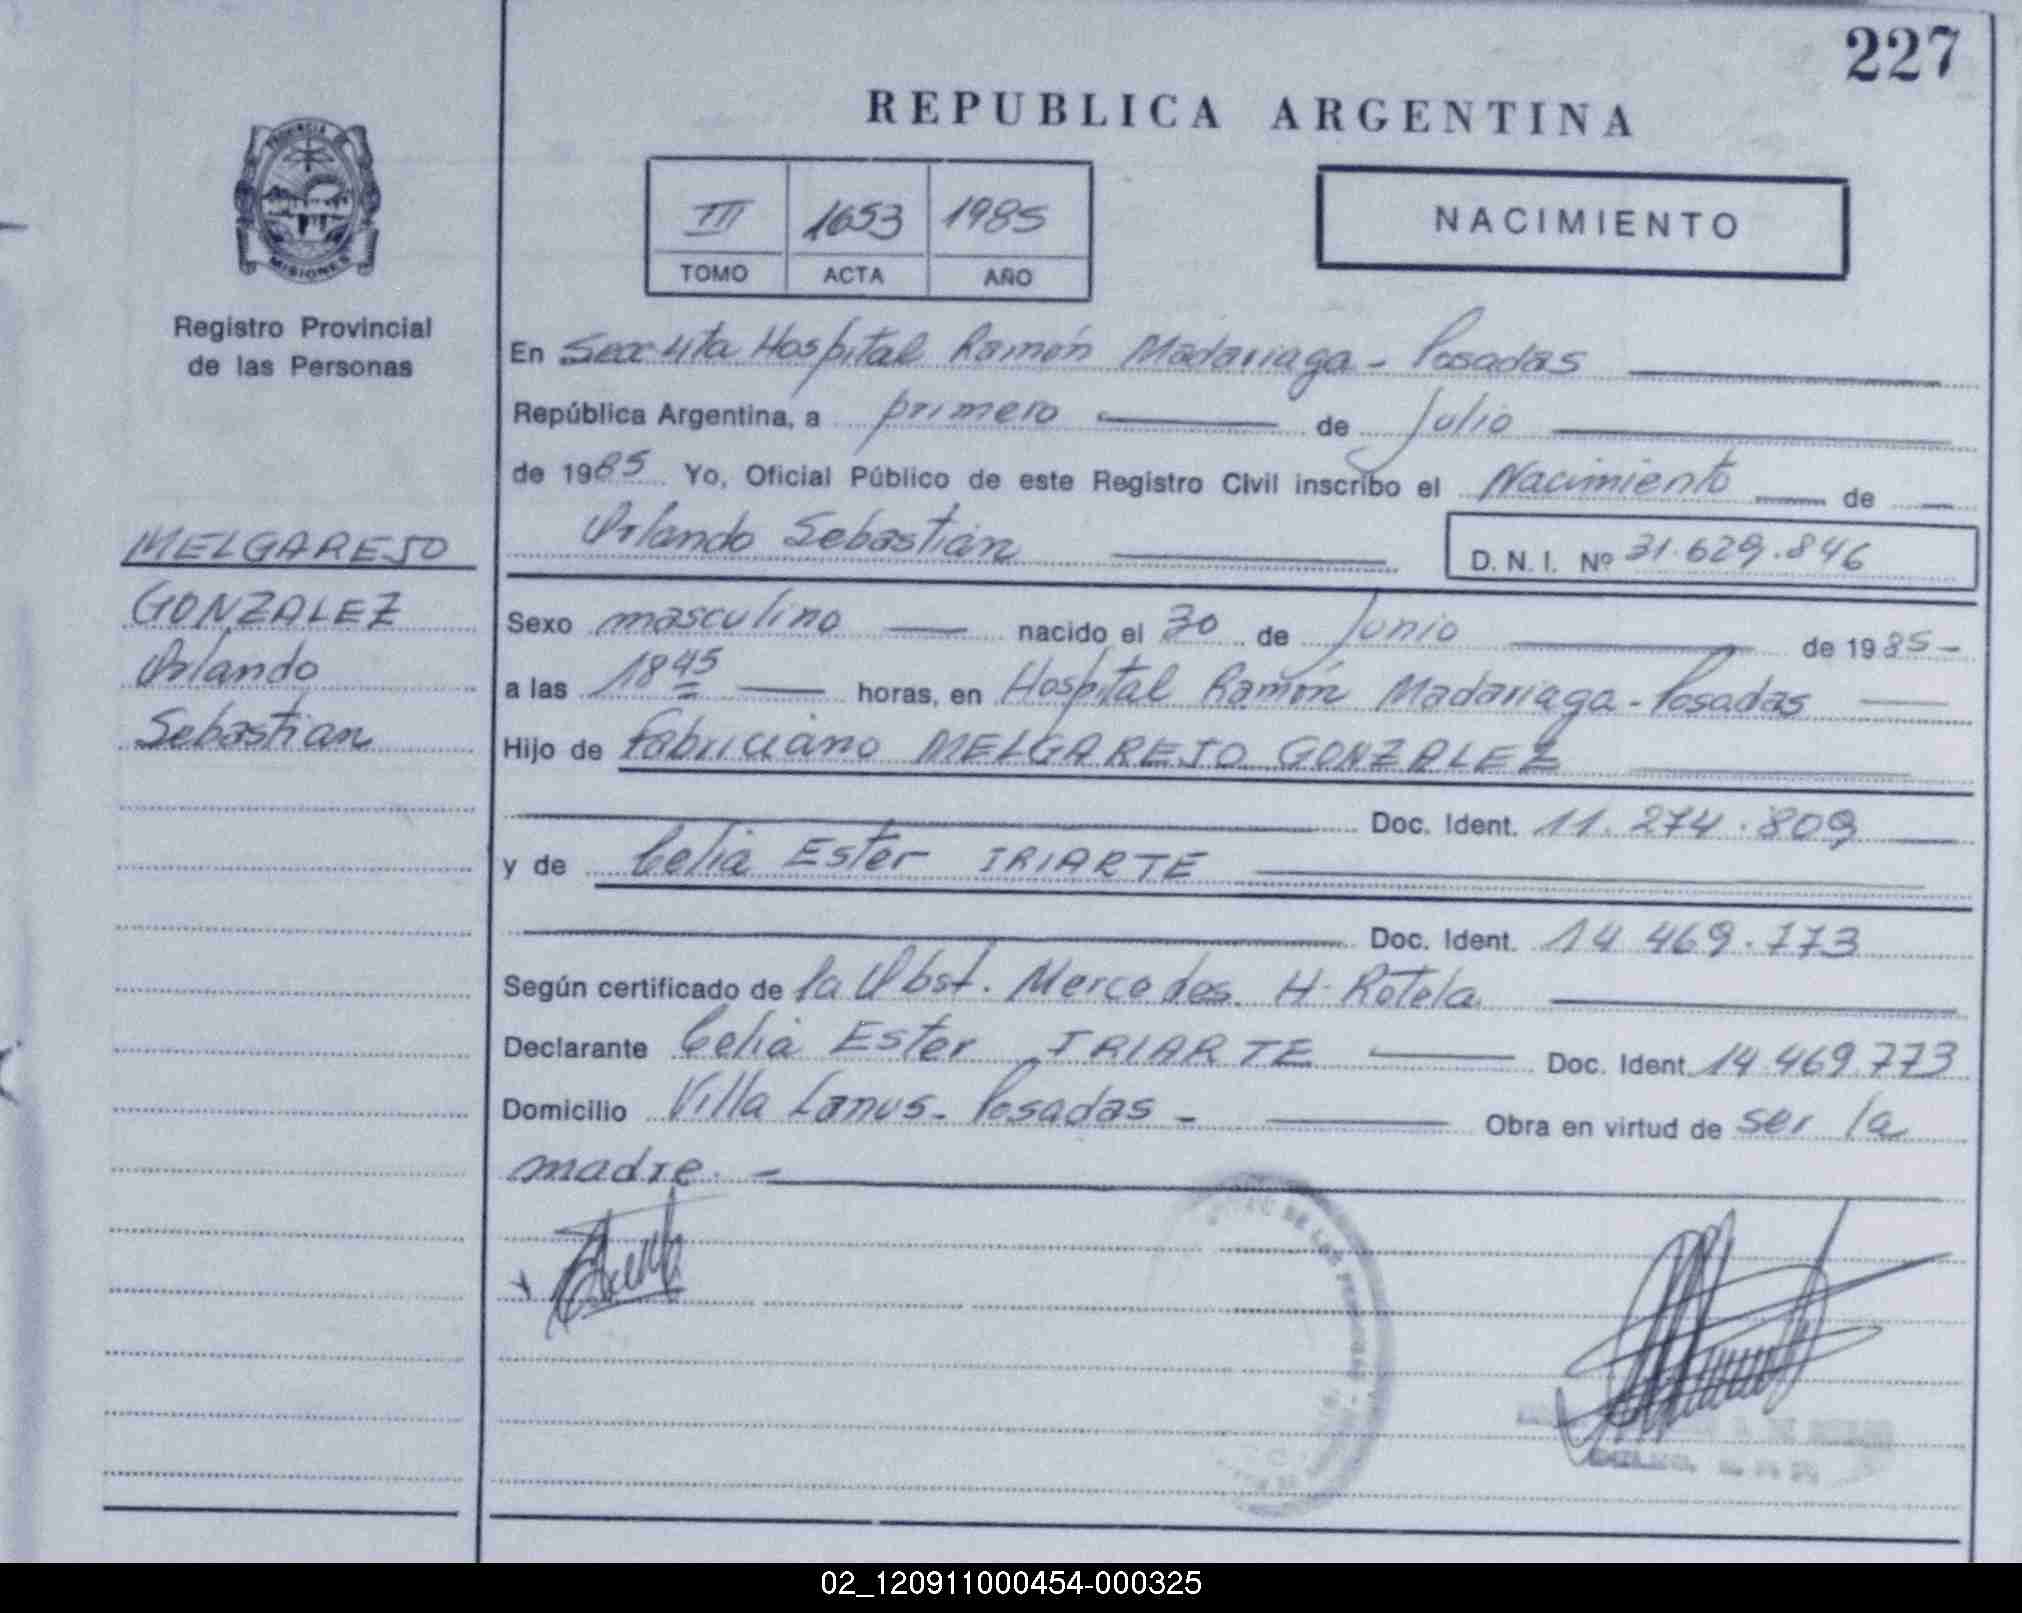 227
REPUBLICA ARGENTINA
PROVINCIA DE
MISIONES
Registro Provincial
de las Personas
III 1653 1985
TOMO ACTA AÑO
NACIMIENTO
En Hospital Ramón Madariaga - Posadas
República Argentina, a primero de Julio
de 1985 Yo, Oficial Público de este Registro Civil inscribo el Nacimiento de
Orlando Sebastián
D. N. I. Nº 31.629.846
MELGAREJO
GONZALEZ
Orlando
Sebastian
Sexo masculino nacido el 30 de Junio de 1985 -
a las 18 45 horas, en Hospital Ramón Madariaga - Posadas
Hijo de Fabriciano MELGAREJO GONZALEZ
Doc. Ident. 11.274.809
y de Celia Ester IRIARTE
Doc. Ident. 14 469.773
Según certificado de la Obst. Mercedes H. Rotela
Declarante Celia Ester IRIARTE Doc. Ident. 14.469.773
Domicilio Villa Lanus - Posadas - Obra en virtud de ser la
madre. -
DE LAS PERSONAS
02_120911000454-000325